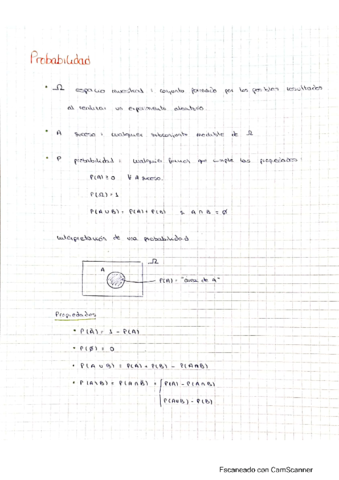 Probabilidad
• Ω espacio muestral : conjunto formado por los posibles resultados
al realizar un experimento aleatorio
• A suceso : cualquier subconjunto medible de Ω
• P probabilidad : cualquier función que cumple las propiedades:
P(A) ≥ 0 ∀ A suceso
P(Ω) = 1
P(A∪B) = P(A) + P(B) si A∩B = Ø
Interpretación de una probabilidad
Ω
A
P(A) = "área de A"
Propiedades
• P(Ā) = 1 - P(A)
• P(Ø) = 0
• P(A∪B) = P(A) + P(B) - P(A∩B)
• P(A\B) = P(A∩B̄) = P(A) - P(A∩B)
P(A∪B) - P(B)
Escaneado con CamScanner